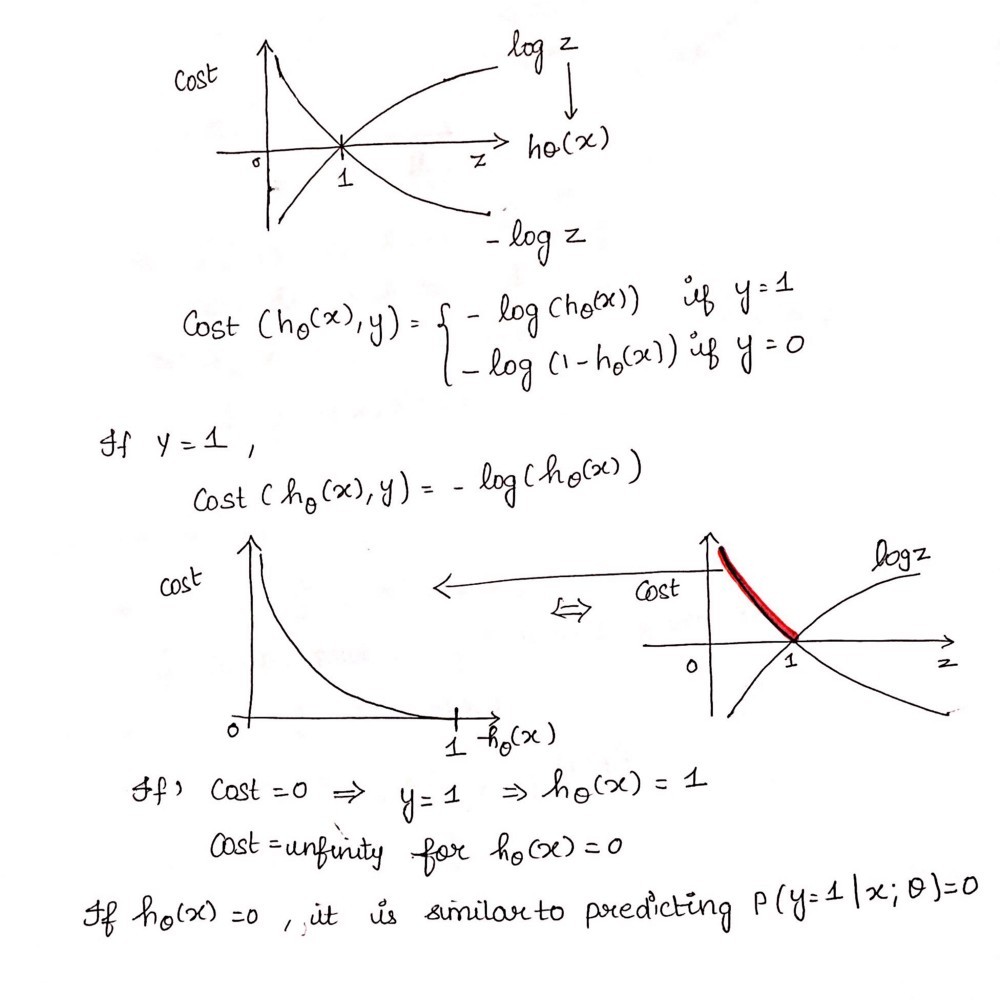 log z
Cost
0
1
z
hθ(x)
- log z
Cost (hθ(x), y) = { - log (hθ(x)) if y = 1
- log (1 - hθ(x)) if y = 0
If y = 1 ,
Cost ( hθ(x), y) = - log (hθ(x))
cost
0
1
hθ(x)
⇔
Cost
log z
0
1
z
If, Cost = 0 ⇒ y = 1 ⇒ hθ(x) = 1
Cost = infinity for hθ(x) = 0
If hθ(x) = 0 , it is similar to predicting P(y=1|x; θ)=0